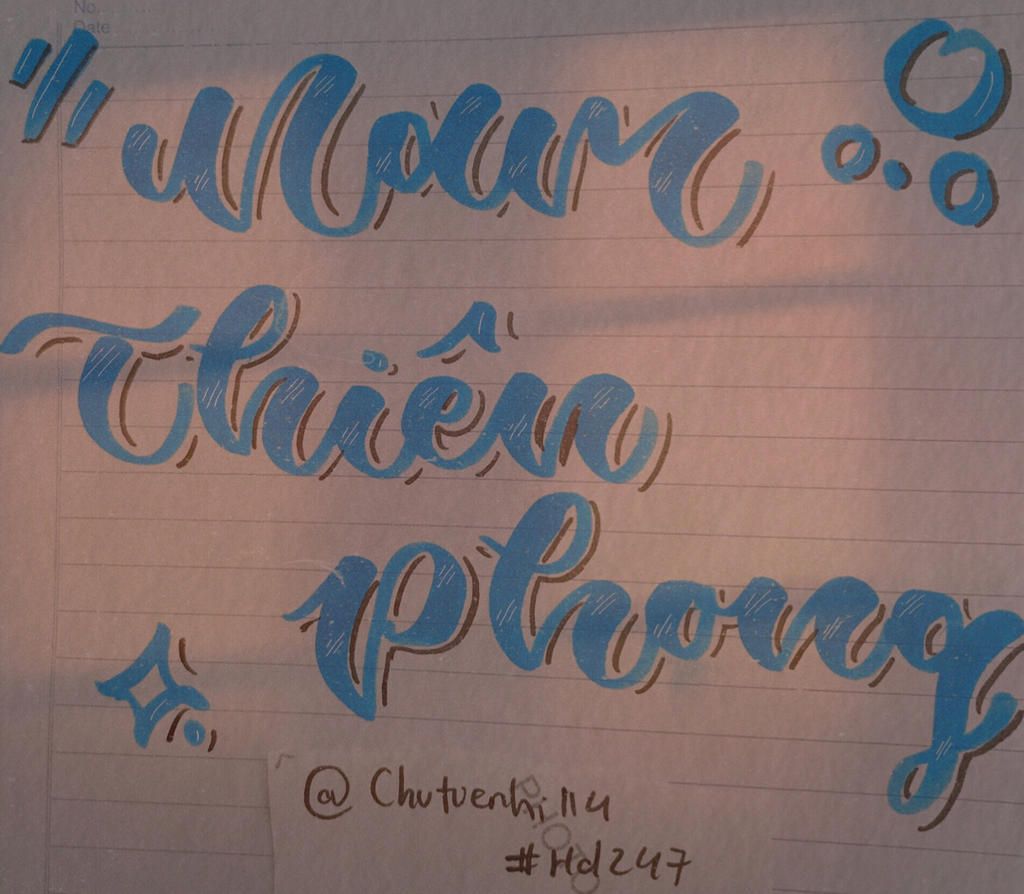 No.
Date
Nam
Thiên
Phong
@Chutuenhi114
#Hd247
PHOTO